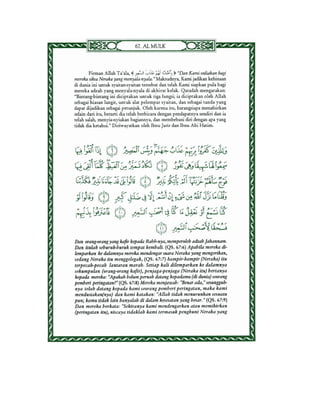 67. AL MULK
Firman Allah Ta'ala, ﴾ وَأَعْتَدْنَا لَهُمْ عَذَابَ السَّعِيرِ ﴿ "Dan Kami sediakan bagi
mereka siksa Neraka yang menyala-nyala." Maksudnya, Kami jadikan kehinaan
di dunia ini untuk syaitan-syaitan tersebut dan telah Kami siapkan pula bagi
mereka adzab yang menyala-nyala di akhirat kelak. Qatadah mengatakan:
"Bintang-bintang ini diciptakan untuk tiga fungsi; ia diciptakan oleh Allah
sebagai hiasan langit, untuk alat pelempar syaitan, dan sebagai tanda yang
dapat dijadikan sebagai petunjuk. Oleh karena itu, barangsiapa menafsirkan
selain dari itu, berarti dia telah berbicara dengan pendapatnya sendiri dan ia
telah salah, menyia-nyiakan bagiannya, dan membebani diri dengan apa yang
tidak dia ketahui." Diriwayatkan oleh Ibnu Jarir dan Ibnu Abi Hatim.
وَلِلَّذِينَ كَفَرُوا بِرَبِّهِمْ عَذَابُ جَهَنَّمَ وَبِئْسَ الْمَصِيرُ ﴿٦﴾ إِذَا أُلْقُوا فِيهَا
سَمِعُوا لَهَا شَهِيقًا وَهِيَ تَفُورُ ﴿٧﴾ تَكَادُ تَمَيَّزُ مِنَ الْغَيْظِ كُلَّمَا أُلْقِيَ فِيهَا
فَوْجٌ سَأَلَهُمْ خَزَنَتُهَا أَلَمْ يَأْتِكُمْ نَذِيرٌ ﴿٨﴾ قَالُوا بَلَى قَدْ جَاءَنَا نَذِيرٌ فَكَذَّبْنَا
وَقُلْنَا مَا نَزَّلَ اللَّهُ مِن شَيْءٍ إِنْ أَنتُمْ إِلَّا فِي ضَلَالٍ كَبِيرٍ ﴿٩﴾ وَقَالُوا لَوْ
كُنَّا نَسْمَعُ أَوْ نَعْقِلُ مَا كُنَّا فِي أَصْحَابِ السَّعِيرِ ﴿١٠﴾ فَاعْتَرَفُوا بِذَنبِهِمْ
فَسُحْقًا لِّأَصْحَابِ السَّعِيرِ ﴿١١﴾
Dan orang-orang yang kafir kepada Rabb-nya, memperoleh adzab Jahannam.
Dan itulah seburuk-buruk tempat kembali. (QS. 67:6) Apabila mereka di-
lemparkan ke dalamnya mereka mendengar suara Neraka yang mengerikan,
sedang Neraka itu menggelegak, (QS. 67:7) hampir-hampir (Neraka) itu
terpecah-pecah lantaran marah. Setiap kali dilemparkan ke dalamnya
sekumpulan (orang-orang kafir), penjaga-penjaga (Neraka itu) bertanya
kepada mereka: "Apakah belum pernah datang kepadamu (di dunia) seorang
pemberi peringatan?" (QS. 67:8) Mereka menjawab: "Benar ada," sesungguh-
nya telah datang kepada kami seorang pemberi peringatan, maka kami
mendustakan(nya) dan kami katakan: "Allah tidak menurunkan sesuatu
pun; kamu tidak lain hanyalah di dalam kesesatan yang besar." (QS. 67:9)
Dan mereka berkata: "Sekiranya kami mendengarkan atau memikirkan
(peringatan itu), niscaya tidaklah kami termasuk penghuni Neraka yang